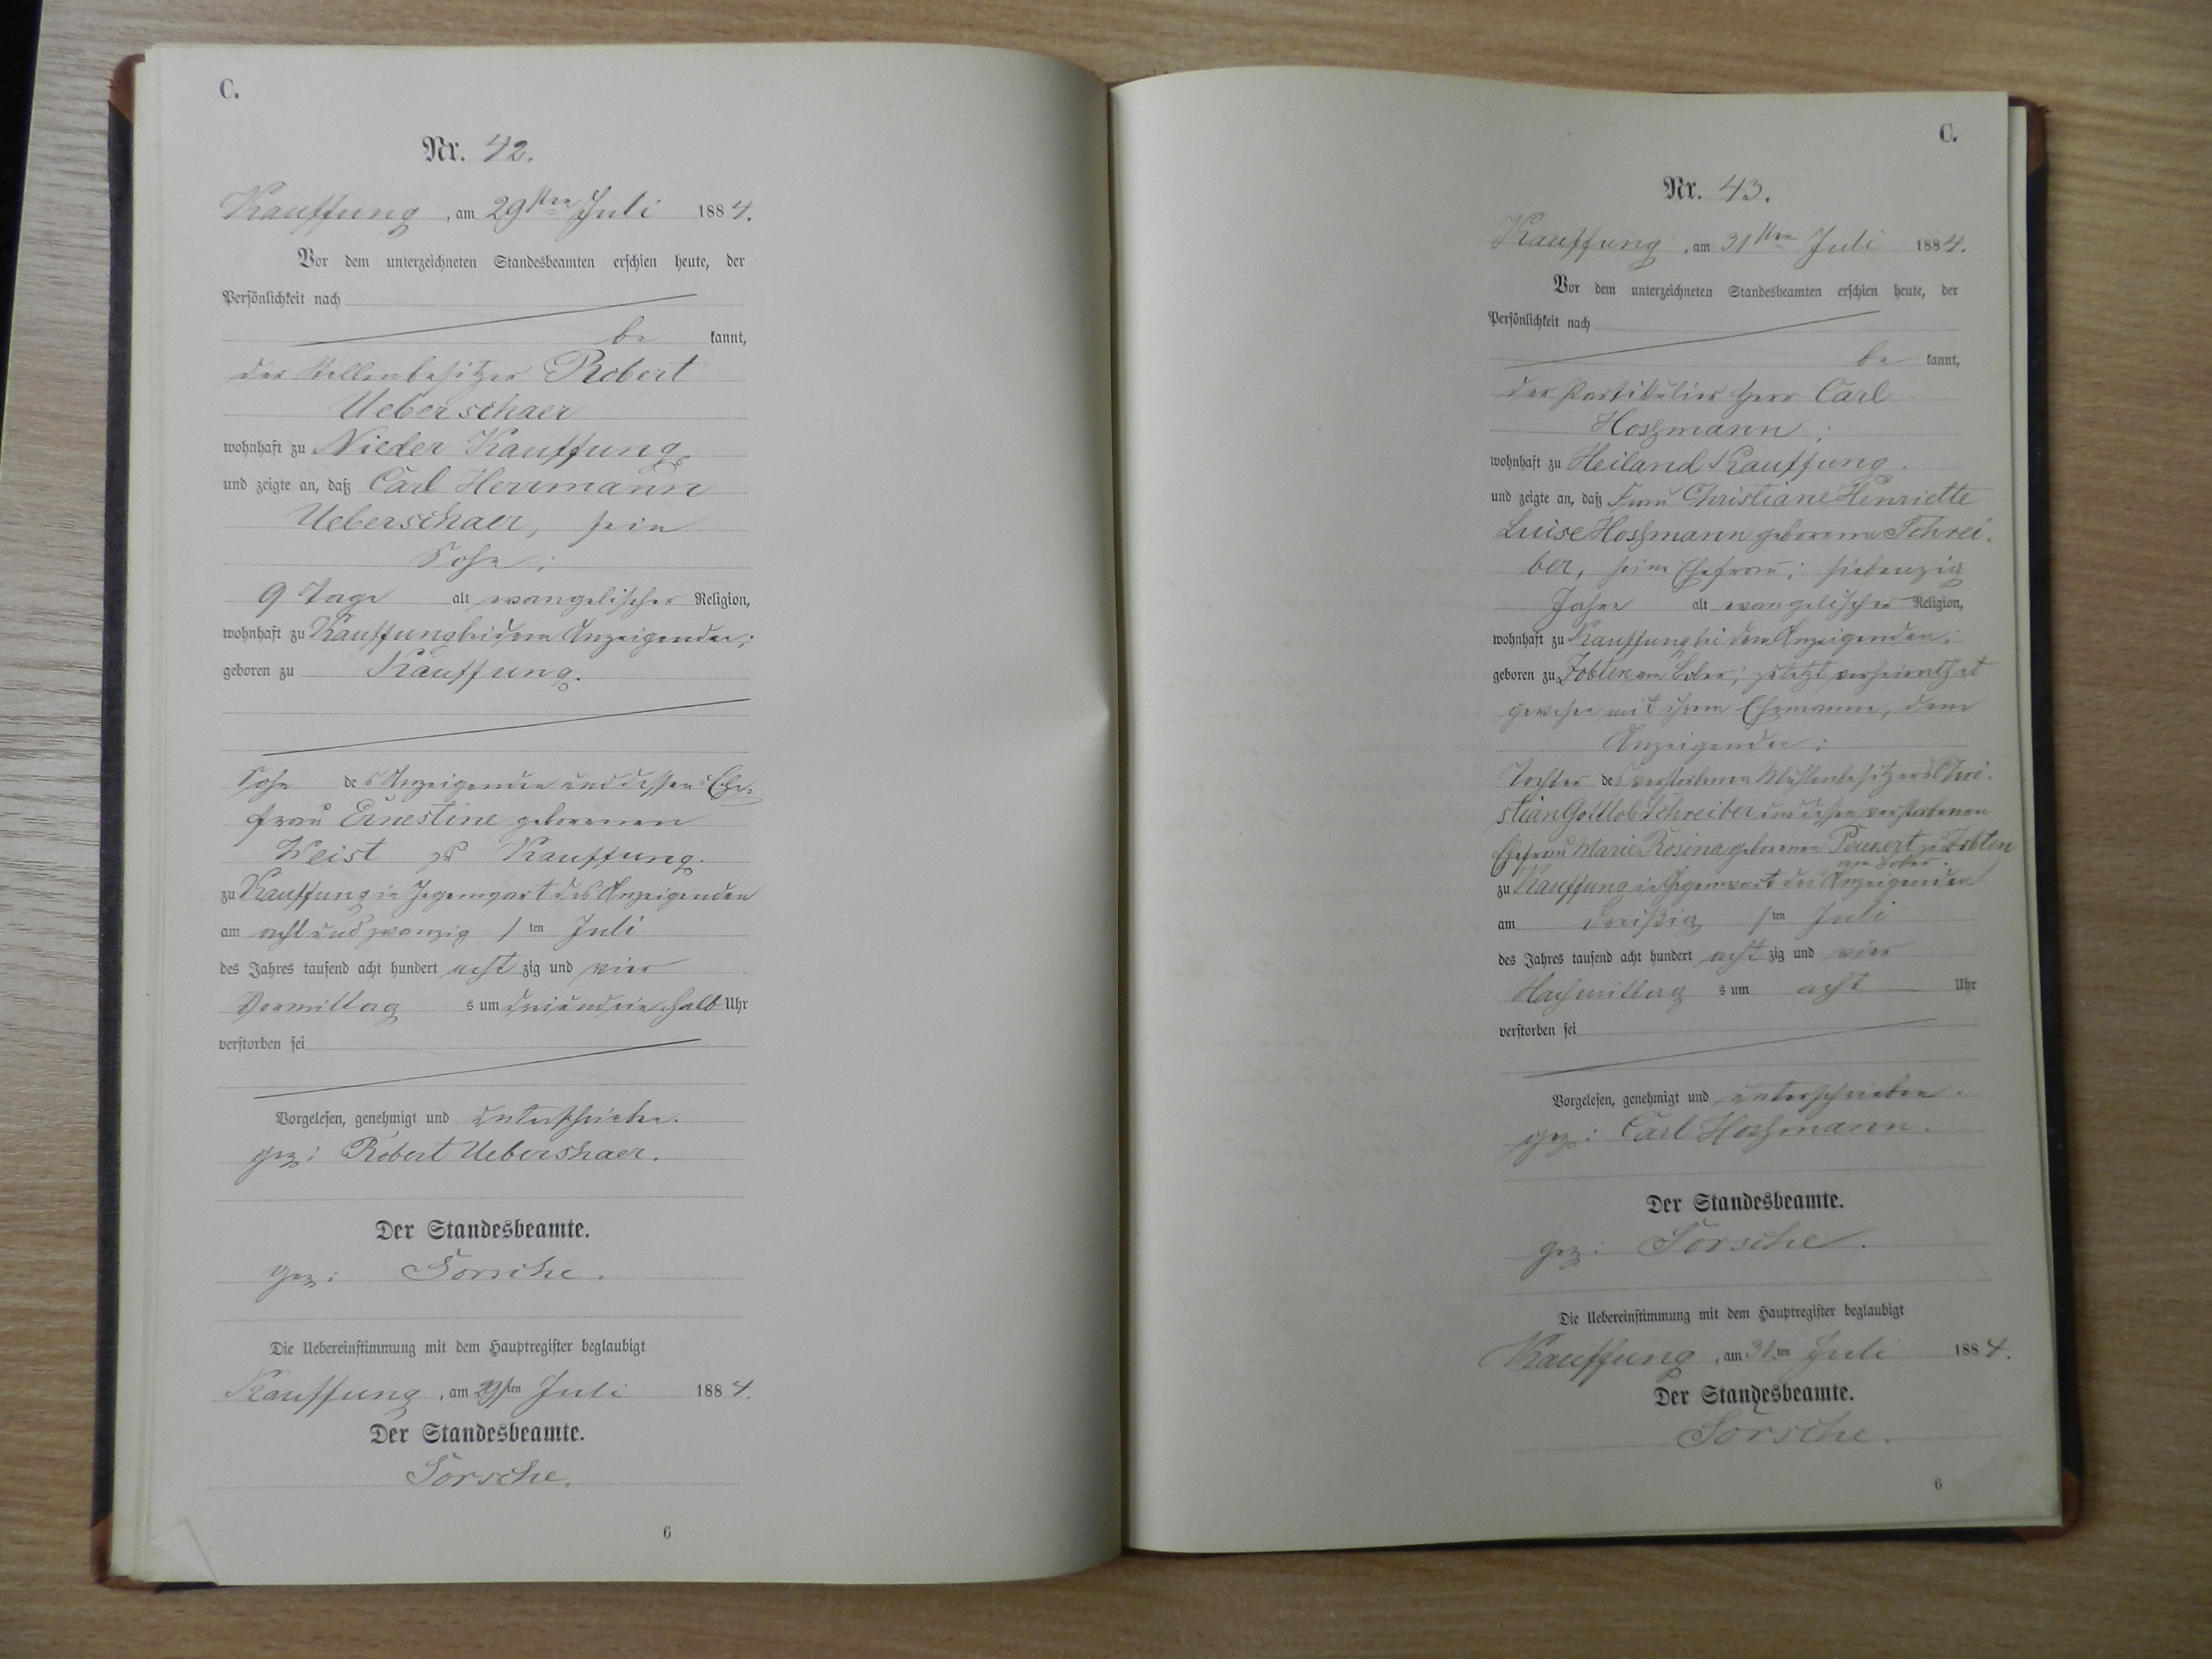 C.
Nr. 42.
Kauffung, am 29sten Juli 1884.
Vor dem unterzeichneten Standesbeamten erschien heute, der
Persönlichkeit nach
be kannt,
der Stellenbesitzer Robert
Ueberschaer
wohnhaft zu Nieder Kauffung
und zeigte an, daß Carl Herrmann
Ueberschaer, sein
Sohn;
9 Tage alt evangelischer Religion,
wohnhaft zu Kauffung bei dem Anzeigenden;
geboren zu Kauffung.
Sohn des Anzeigenden und dessen Ehe-
frau Ernestine geborenen
Weist zu Kauffung.
zu Kauffung in Gegenwart des Anzeigenden
am acht und zwanzigsten Juli
des Jahres tausend acht hundert acht zig und vier
Vormittags um drei und ein halb Uhr
verstorben sei
Vorgelesen, genehmigt und unterschrieben.
gez: Robert Ueberschaer.
Der Standesbeamte.
gez: Sorsche.
Die Uebereinstimmung mit dem Hauptregister beglaubigt
Kauffung, am 29sten Juli 1884.
Der Standesbeamte.
Sorsche.
6
C.
Nr. 43.
Kauffung, am 31sten Juli 1884.
Vor dem unterzeichneten Standesbeamten erschien heute, der
Persönlichkeit nach
be kannt,
der Partikulier Herr Carl
Hoszmann;
wohnhaft zu Heiland Kauffung.
und zeigte an, daß Frau Christiane Henriette
Luise Hoszmann geborene Schrei-
ber, seine Ehefrau; siebenzig
Jahre alt evangelischer Religion,
wohnhaft zu Kauffung bei dem Anzeigenden;
geboren zu Zobten am Bober; zuletzt verheirathet
gewesen mit ihrem Ehemanne, dem
Anzeigenden;
Tochter des verstorbenen Mühlenbesitzers Chri-
stian Gottlob Schreiber und dessen verstorbenen
Ehefrau Marie Rosina geborenen Peukert zu Zobten
am Bober.
zu Kauffung in Gegenwart des Anzeigenden
am dreißigsten Juli
des Jahres tausend acht hundert acht zig und vier
Nachmittags um acht Uhr
verstorben sei
Vorgelesen, genehmigt und unterschrieben.
gez: Carl Hoszmann.
Der Standesbeamte.
gez: Sorsche.
Die Uebereinstimmung mit dem Hauptregister beglaubigt
Kauffung, am 31.ten Juli 1884.
Der Standesbeamte.
Sorsche.
6